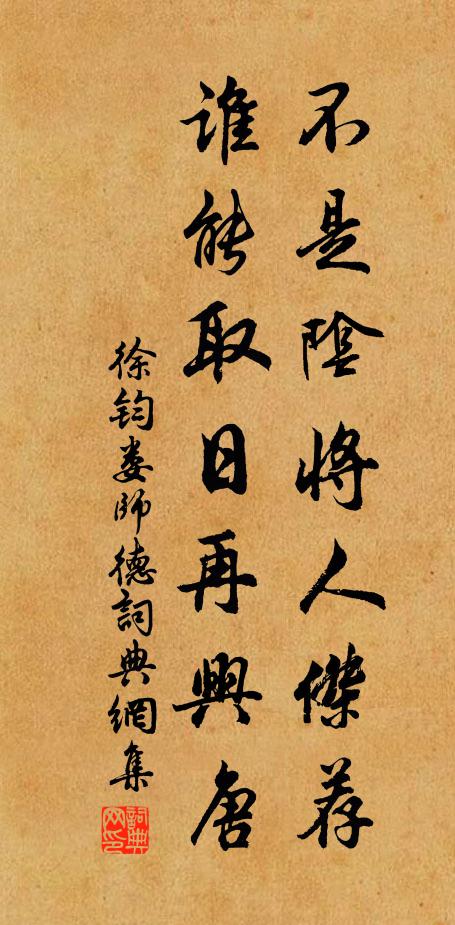 不是陰將人傑荐
誰能取日再興唐
徐鈞婁師德詞典網集
詞典网印